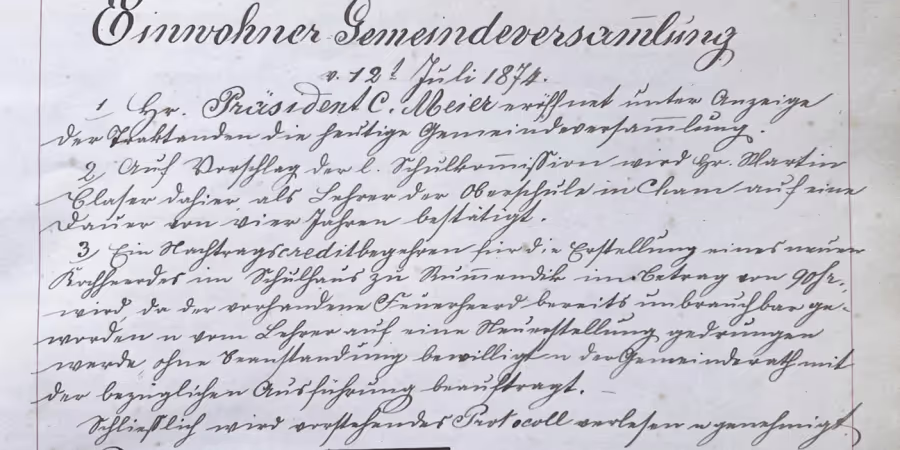 Einwohner Gemeindeversam̅lung
v. 12t Juli 1874.
1, Hr. Präsident C. Meier eröffnet unter Anzeige
der Traktanden die heutige Gemeindeversam̅lung.
2, Auf Vorschlag der l. Schulkom̅ission wird Hr. Martin
Blaser dahier, als Lehrer der Oberschule in Cham auf eine
Dauer von vier Jahren bestätigt.
3, Ein Nachtragscreditbegehren für die Erstellung eines neuen
Kochheerdes im Schulhaus zu Rum̅endik im Betrag von 90 fr.,
wird, da der vorhandene Feuerheerd bereits unbrauchbar ge-
worden u vom Lehrer auf eine Neuerstellung gedrungen
werde, ohne Beanstandung bewilligt u der Gemeinderath mit
der bezüglichen Ausführung beauftragt. –
Schließlich wird vorstehendes Protocoll verlesen u genehmigt.